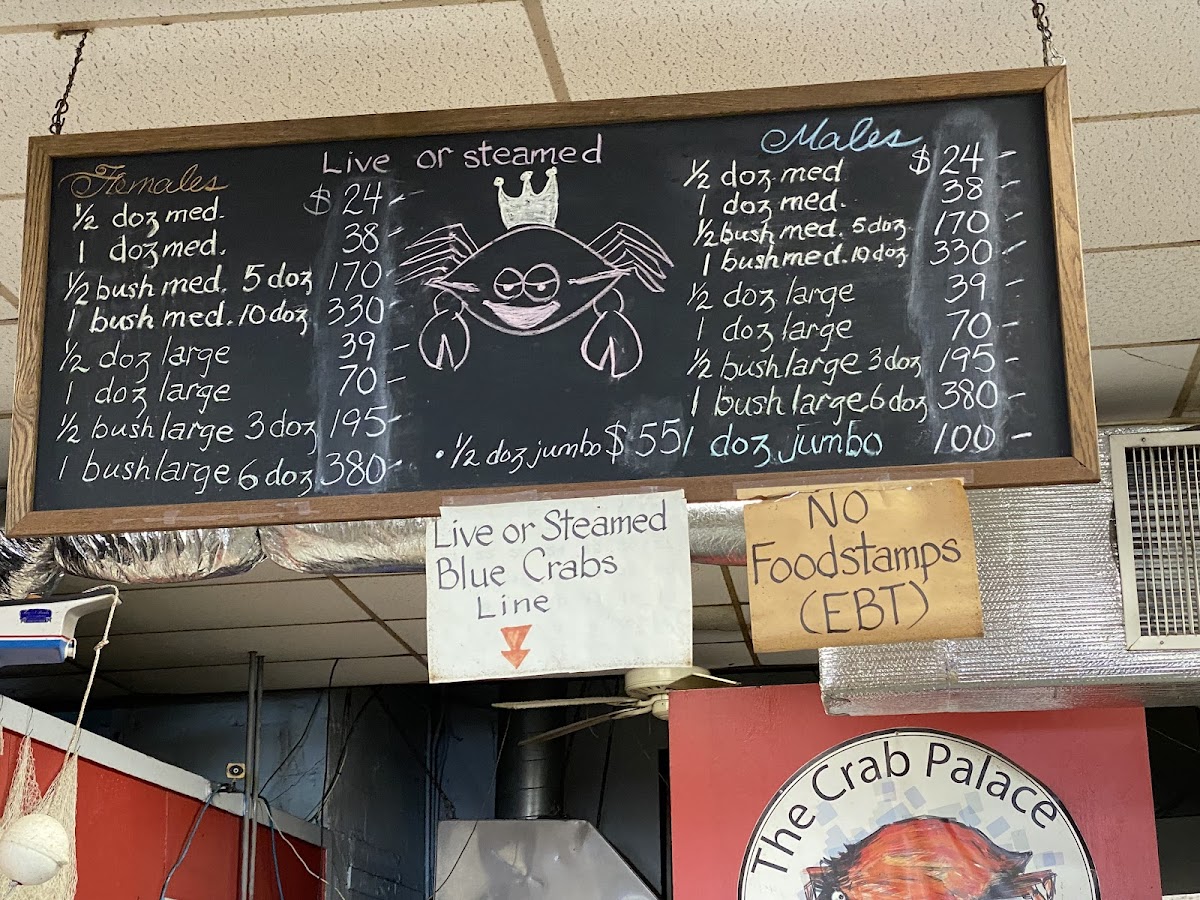 Live or steamed
Females
½ doz med. $ 24 -
1 doz med. 38 -
½ bush med. 5 doz 170 -
1 bush med. 10 doz 330
½ doz large 39 -
1 doz large 70 -
½ bush large 3 doz 195 -
1 bush large 6 doz 380 -
Males
½ doz med $ 24 -
1 doz med. 38 -
½ bush med. 5 doz. 170 -
1 bush med. 10 doz 330 -
½ doz large 39 -
1 doz large 70 -
½ bush large 3 doz 195 -
1 bush large 6 doz 380 -
• ½ doz jumbo $ 55
1 doz jumbo 100 -
Live or Steamed
Blue Crabs
Line
NO
Foodstamps
(EBT)
The Crab Palace